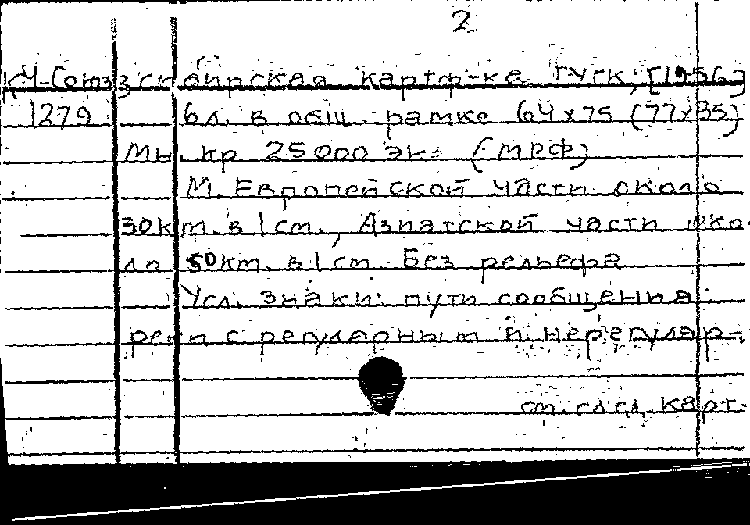 2
КЧ-Союзз ск аирская картф-ка ГУГК, [1956]
1279 6л. в общ. рамке 64x75 (77x85)
Мн. кр 25000 экз (МРФ)
М. Европейской части около
30км. в 1 см., Азиатской части око-
ло 50км. в 1 см Без рельефа
Усл. знаки: пути сообщения:
реки с регулярным и нерегуляр-
см. след. карт.